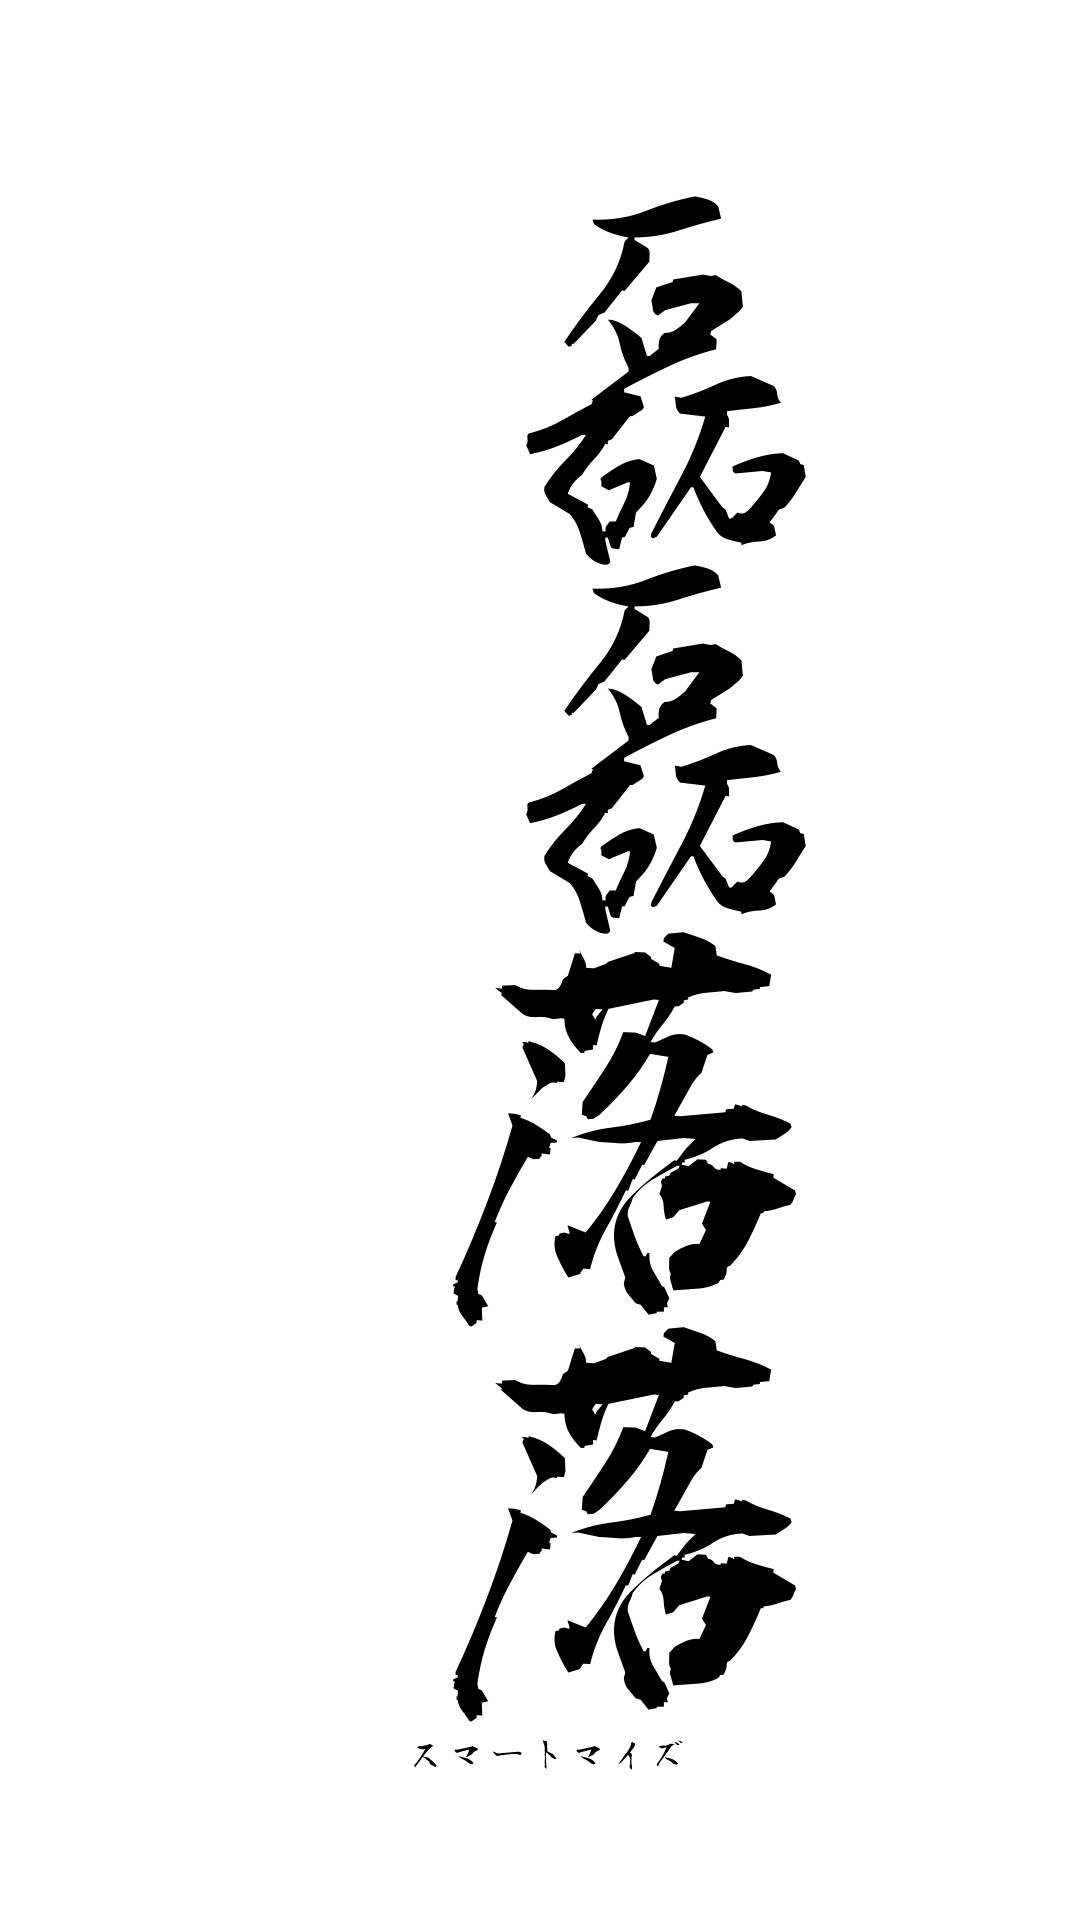 磊磊落落
スマートマイズ